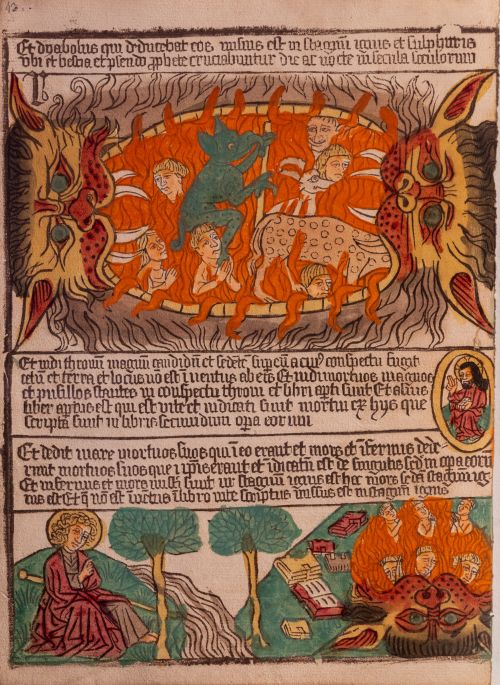 Et dyabolus qui deducebat eos missus est in stagnū ignis et sulphuris
vbi et bestia et pseudo ꝓphete cruciabuntur die ac nocte in secula seculorum
Et vidi thronū magnū candidū et sedētē sup eū a cuiꝰ conspectu fugit
celū et terra et locus nō est īventus ab eis Et vidi mortuos magnos
et pusillos stantes in conspectu throni et libri apti sunt Et alius
liber aptus est qui est vite et iudicati sunt mortui ex hijs que
scripta sunt in libris secundum opa eorum
Et dedit mare mortuos suos qui ī eo erant et mors et īfernus dede
runt mortuos suos que ī ipīs erant et iudicatū est de singulis sedm opa eorū
Et infernus et mors missi sunt in stagnū ignis est hec mors sedā stagnū ig
nis est Et q̄ nō est īvētus ī libro vite scriptus missus est in stagnū ignis